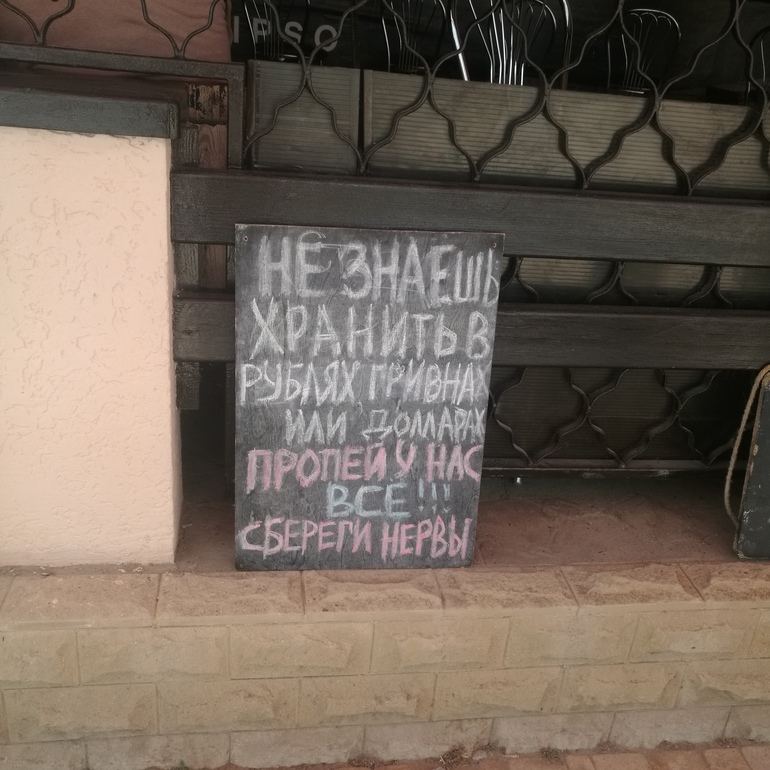 IPSO
НЕ ЗНАЕШЬ
ХРАНИТЬ В
РУБЛЯХ ГРИВНАХ
ИЛИ ДОЛЛАРАХ
ПРОПЕЙ У НАС
ВСЕ!!!
СБЕРЕГИ НЕРВЫ